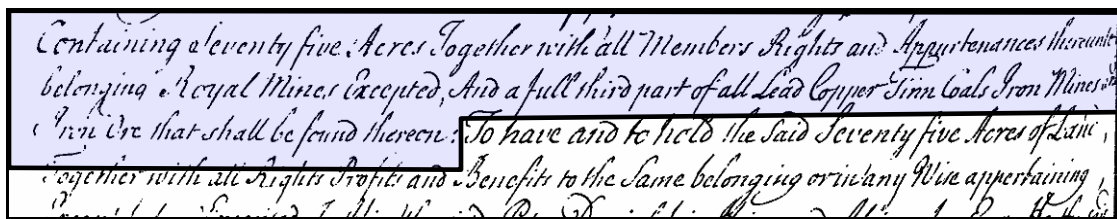 Containing Seventy five Acres Together with all Members Rights and Appurtenances thereunto
belonging Royal Mines Excepted, And a full third part of all Lead Copper Tinn Coals Iron Mines and
Iron Ore that shall be found thereon: To have and to hold the Said Seventy five Acres of Land,
Together with all Rights Profits and Benefits to the Same belonging or in any Wise appertaining,